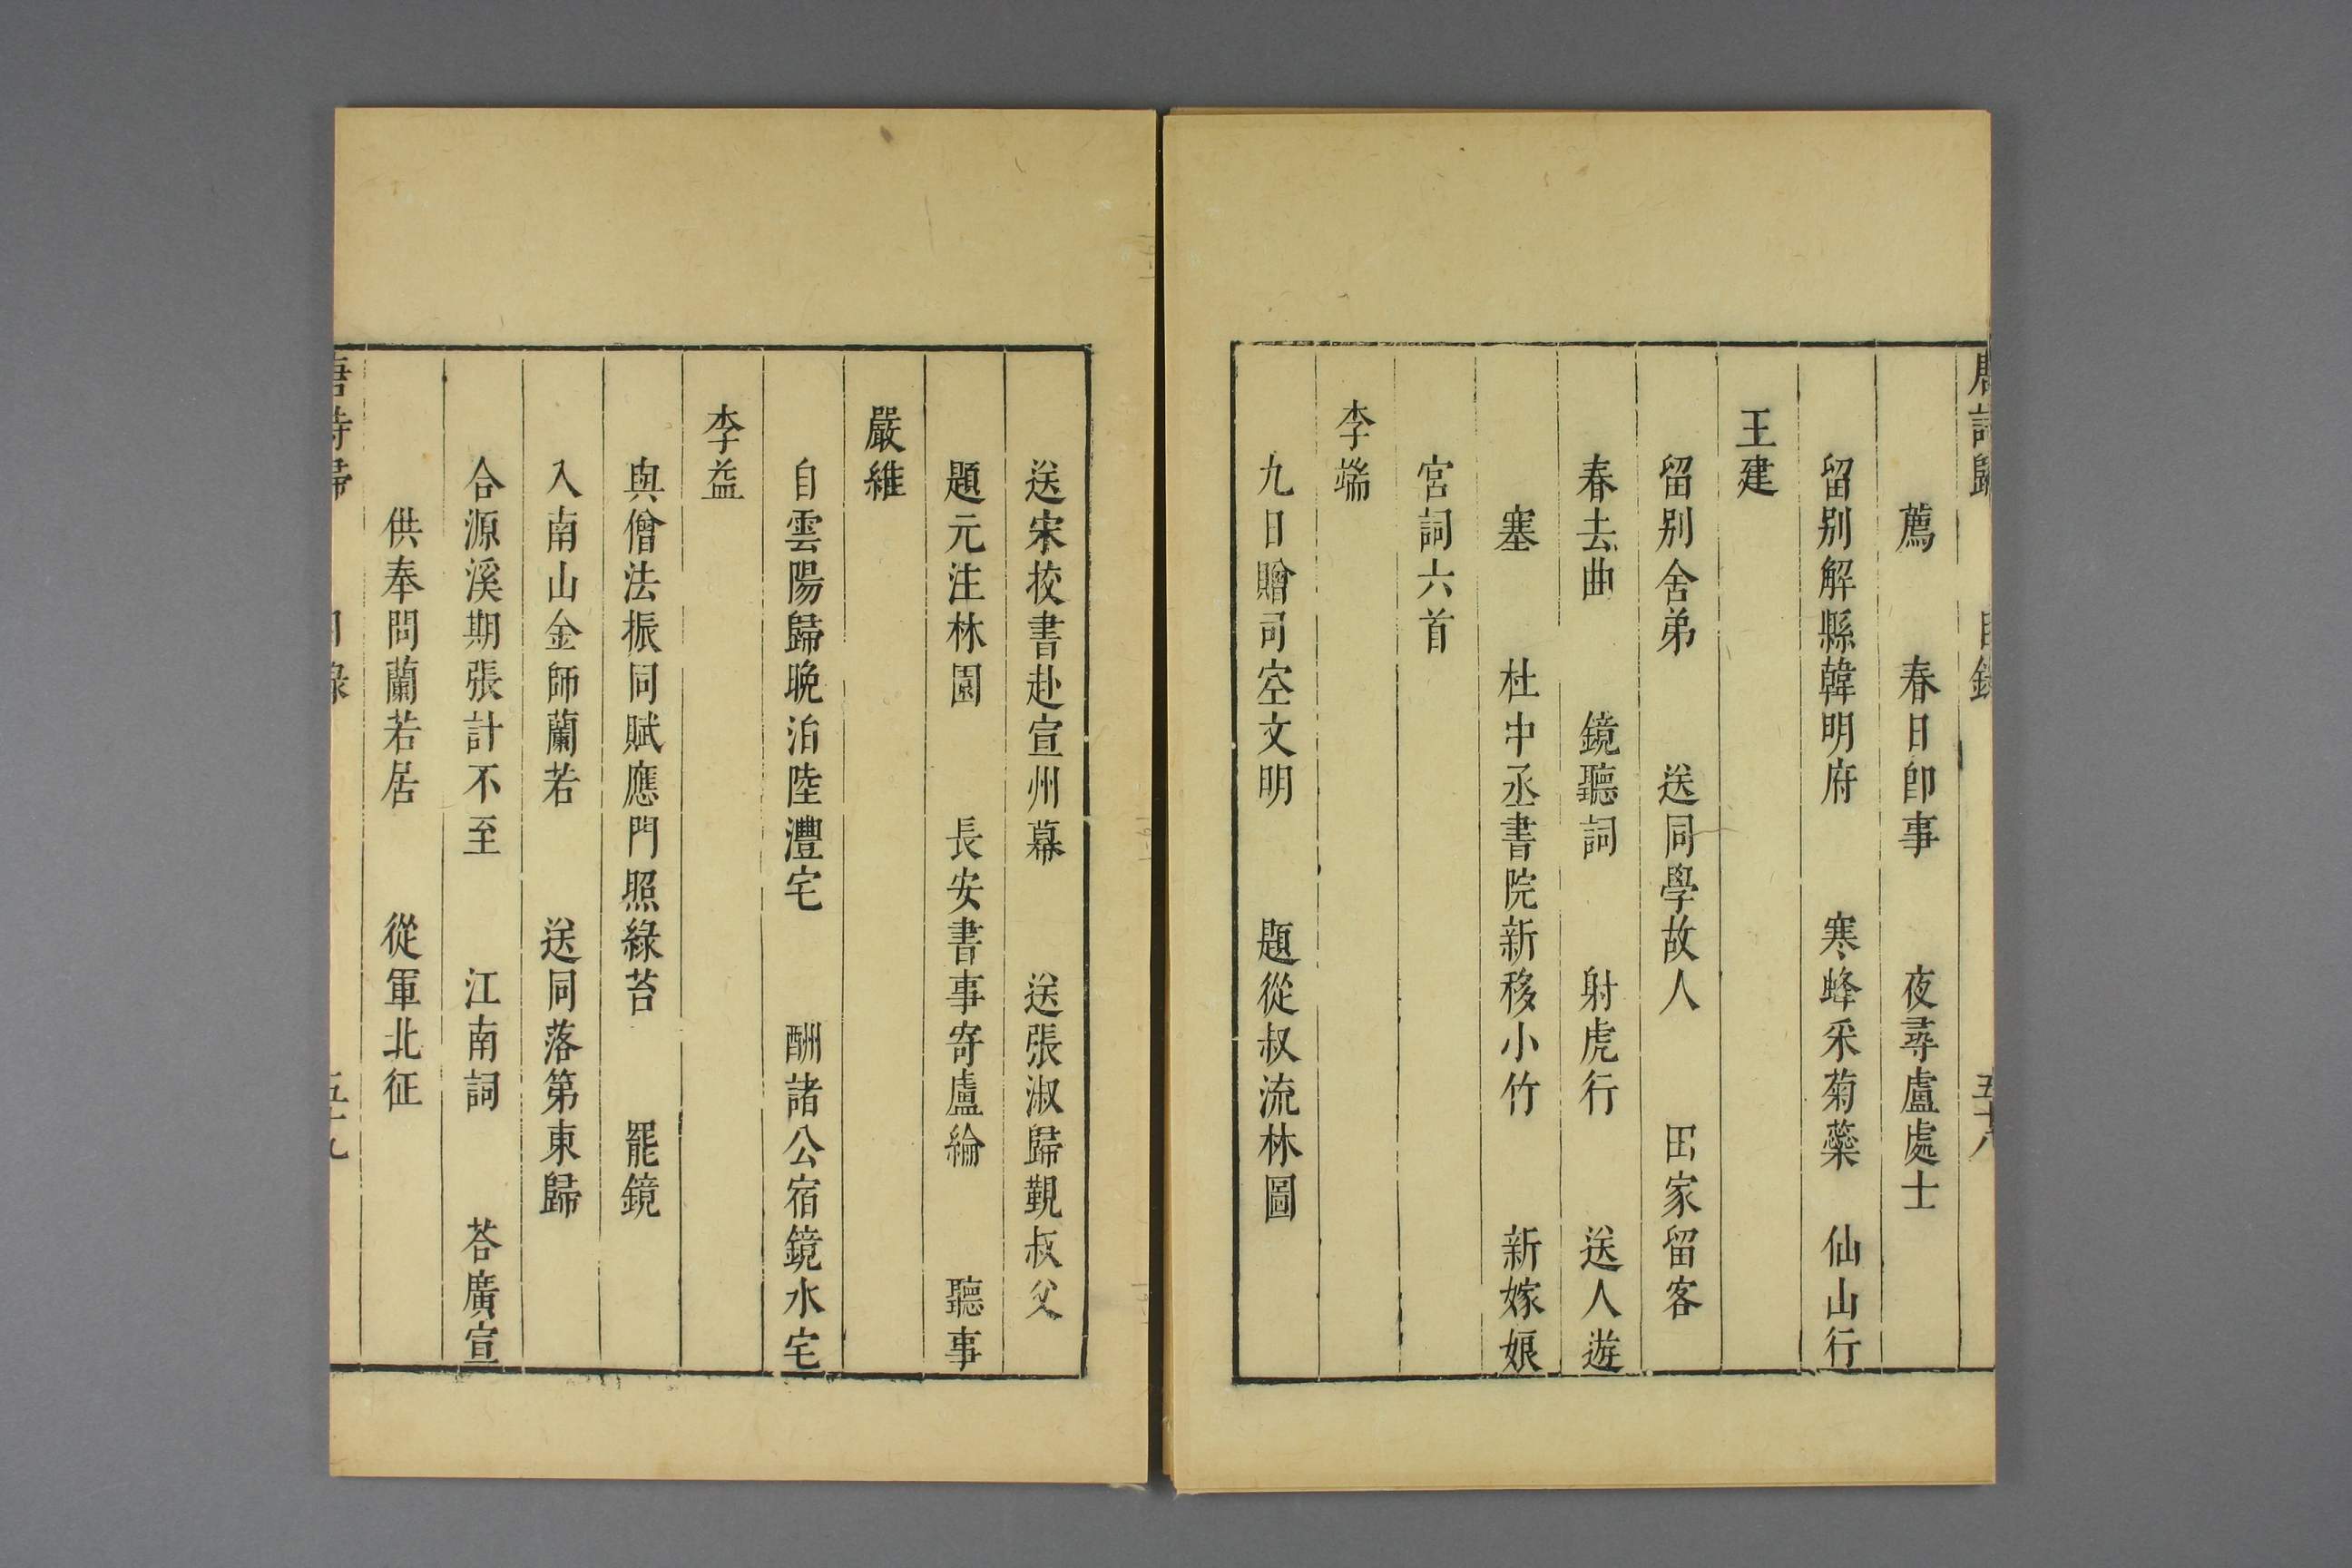 唐詩歸 目錄 五十八
薦 春日卽事 夜尋盧處士
留別解縣韓明府 寒蜂采菊蘂 仙山行
王建
留別舍弟 送同學故人 田家留客
春去曲 鏡聽詞 射虎行 送人遊
塞 杜中丞書院新移小竹 新嫁娘
宮詞六首
李端
九日贈司空文明 題從叔流林園
送宋挍書赴宣州幕 送張淑歸覲叔父
題元注林園 長安書事寄盧綸 聽事
嚴維
自雲陽歸晚泊陸澧宅 酬諸公宿鏡水宅
李益
與僧法振同賦應門照綠苔 罷鏡
入南山金師蘭若 送同落第東歸
合源溪期張計不至 江南詞 荅廣宣
供奉問蘭若居 從軍北征
唐詩歸 目錄 五十九